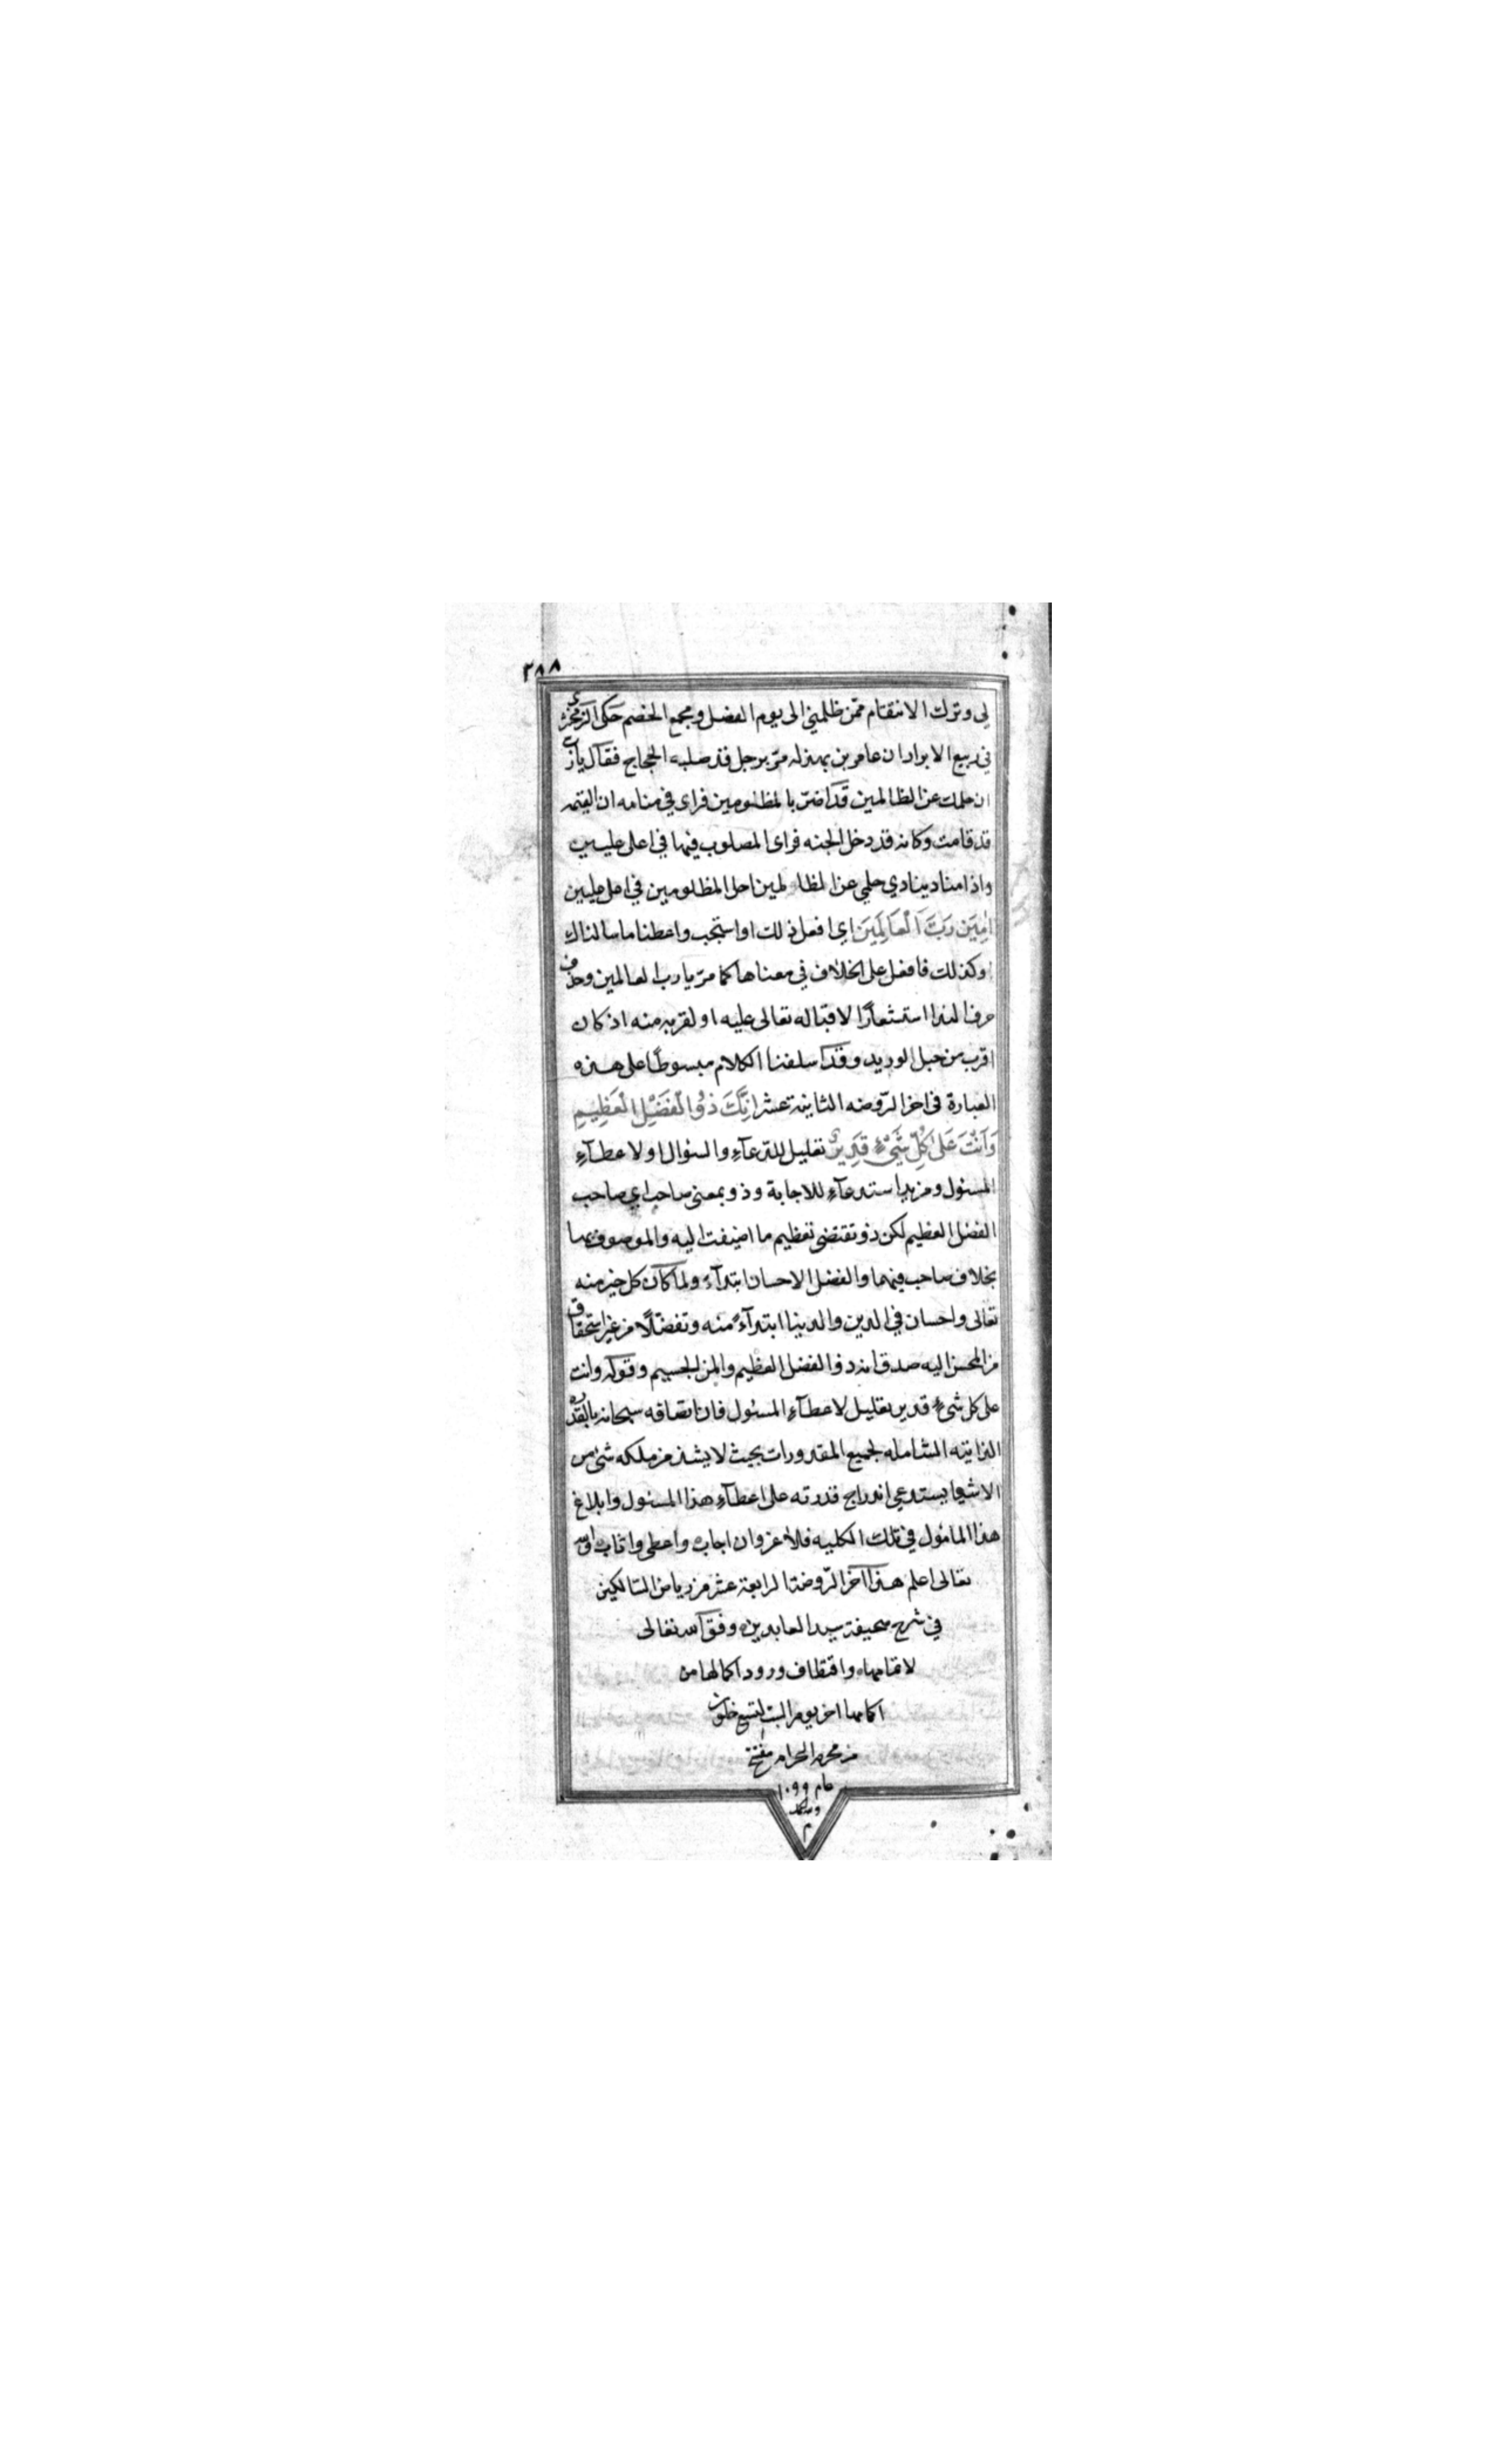 ٣٨٨
لي وترك الانتقام ممّن ظلمني الى يوم الفصل ومجمع الخصم حكى الزمخشري
في ربيع الابرار ان عامر بن بهدله مرّ برجل قد صلبه الحجاج فقال يا رب
ان حلمك عن الظالمين قد اضرّ بالمظلومين فراى في منامه ان القيمه
قد قامت وكانه قد دخل الجنه فراى المصلوب فيها في اعلى عليين
واذا مناد ينادي حلمي عن الظالمين احل المظلومين في اعلى عليين
امِينَ رَبَّ الْعَالَمِينَ اي افعل ذلك او استجب واعطنا ما سالناك
او كذلك فافعل على الخلاف في معناها كما مرّ يا رب العالمين وحذف
حرف الندا استشعارًا لاقباله تعالى عليه او لقربه منه اذ كان
اقرب من حبل الوريد وقد اسلفنا الكلام مبسوطًا على هذه
العبارة في اخر الرّوضه الثانية عشر اِنَّكَ ذُو الْفَضْلِ الْعَظِيمِ
وَاَنْتَ عَلىٰ كُلِّ شَيْءٍ قَدِيرٌ تعليل للدعآء والسؤال او لاعطآء
المسئول ومزيد استدعآء للاجابة وذو بمعنى صاحب اي صاحب
الفضل العظيم لكن ذو تقتضى تعظيم ما اضيفت اليه والموصوف بها
بخلاف صاحب فيهما والفضل الاحسان ابتدآء ولما كان كل خير منه
تعالى واحسان في الدين والدنيا ابتدآءً منه وتفضّلًا من غير استحقاق
من المحسن اليه صدق انه ذو الفضل العظيم والمن الجسيم وقوله وانت
على كل شىء قدير تعليل لاعطآء المسئول فان اتصافه سبحانه بالقدره
الذاتيه الشامله لجميع المقدورات بحيث لا يشذ من ملكه شئ من
الاشيا يستدعي اندراج قدرته على اعطآء هذا المسئول وابلاغ
هذا المامُول في تلك الكليه فلا غرو ان اجاب واعطى واثاب والله
تعالى اعلم هذا آخر الرّوضة الرابعة عشر من رياض السالكين
في شرح صحيفة سيد العابدين وفق الله تعالى
لاتمامها واقتطاف ورود اكمالها من
اكمامها اخر يوم السبت لتسع خلون
من محرم الحرام مفتتح
عام ١٠٩٩
ولله الحمد
م